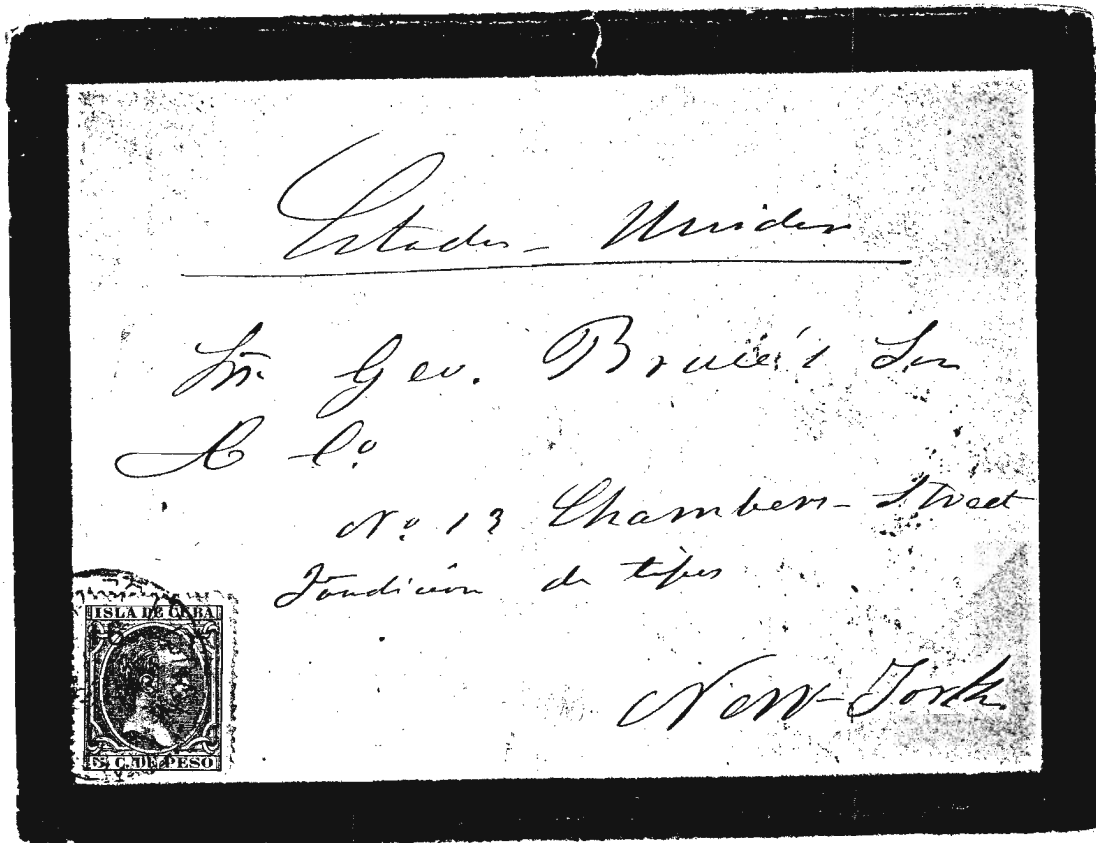 Estados - Unidos
Sres. Geo. Bruce's Son
& Co.
No. 13 Chambers - Street
Fundición de tipos
New-York.
ISLA DE CUBA
5 C. DE PESO